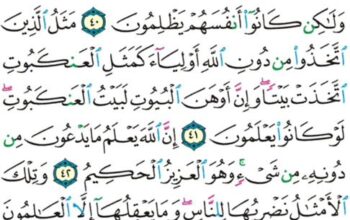 وَلَٰكِن كَانُوٓا۟ أَنفُسَهُمْ يَظْلِمُونَ ٤٠ مَثَلُ ٱلَّذِينَ
ٱتَّخَذُوا۟ مِن دُونِ ٱللَّهِ أَوْلِيَآءَ كَمَثَلِ ٱلْعَنكَبُوتِ
ٱتَّخَذَتْ بَيْتًا ۖ وَإِنَّ أَوْهَنَ ٱلْبُيُوتِ لَبَيْتُ ٱلْعَنكَبُوتِ ۖ
لَوْ كَانُوا۟ يَعْلَمُونَ ٤١ إِنَّ ٱللَّهَ يَعْلَمُ مَا يَدْعُونَ مِن
دُونِهِۦ مِن شَىْءٍ ۚ وَهُوَ ٱلْعَزِيزُ ٱلْحَكِيمُ ٤٢ وَتِلْكَ
ٱلْأَمْثَٰلُ نَضْرِبُهَا لِلنَّاسِ ۖ وَمَا يَعْقِلُهَآ إِلَّا ٱلْعَٰلِمُونَ